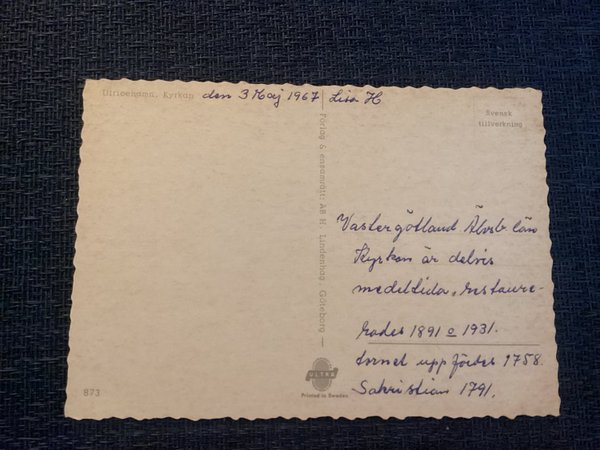 Ulricehamn, Kyrkan den 3 Maj 1967 Lisa H
Svensk
tillverkning
Förlag & ensamrätt: AB H. Lindenhag, Göteborg
Västergötland Älvsb län
Kyrkan är delvis
medeltida, restaure-
rades 1891 o 1931.
tornet uppfördes 1758.
Sakristian 1791.
ULTRA
Printed in Sweden
873